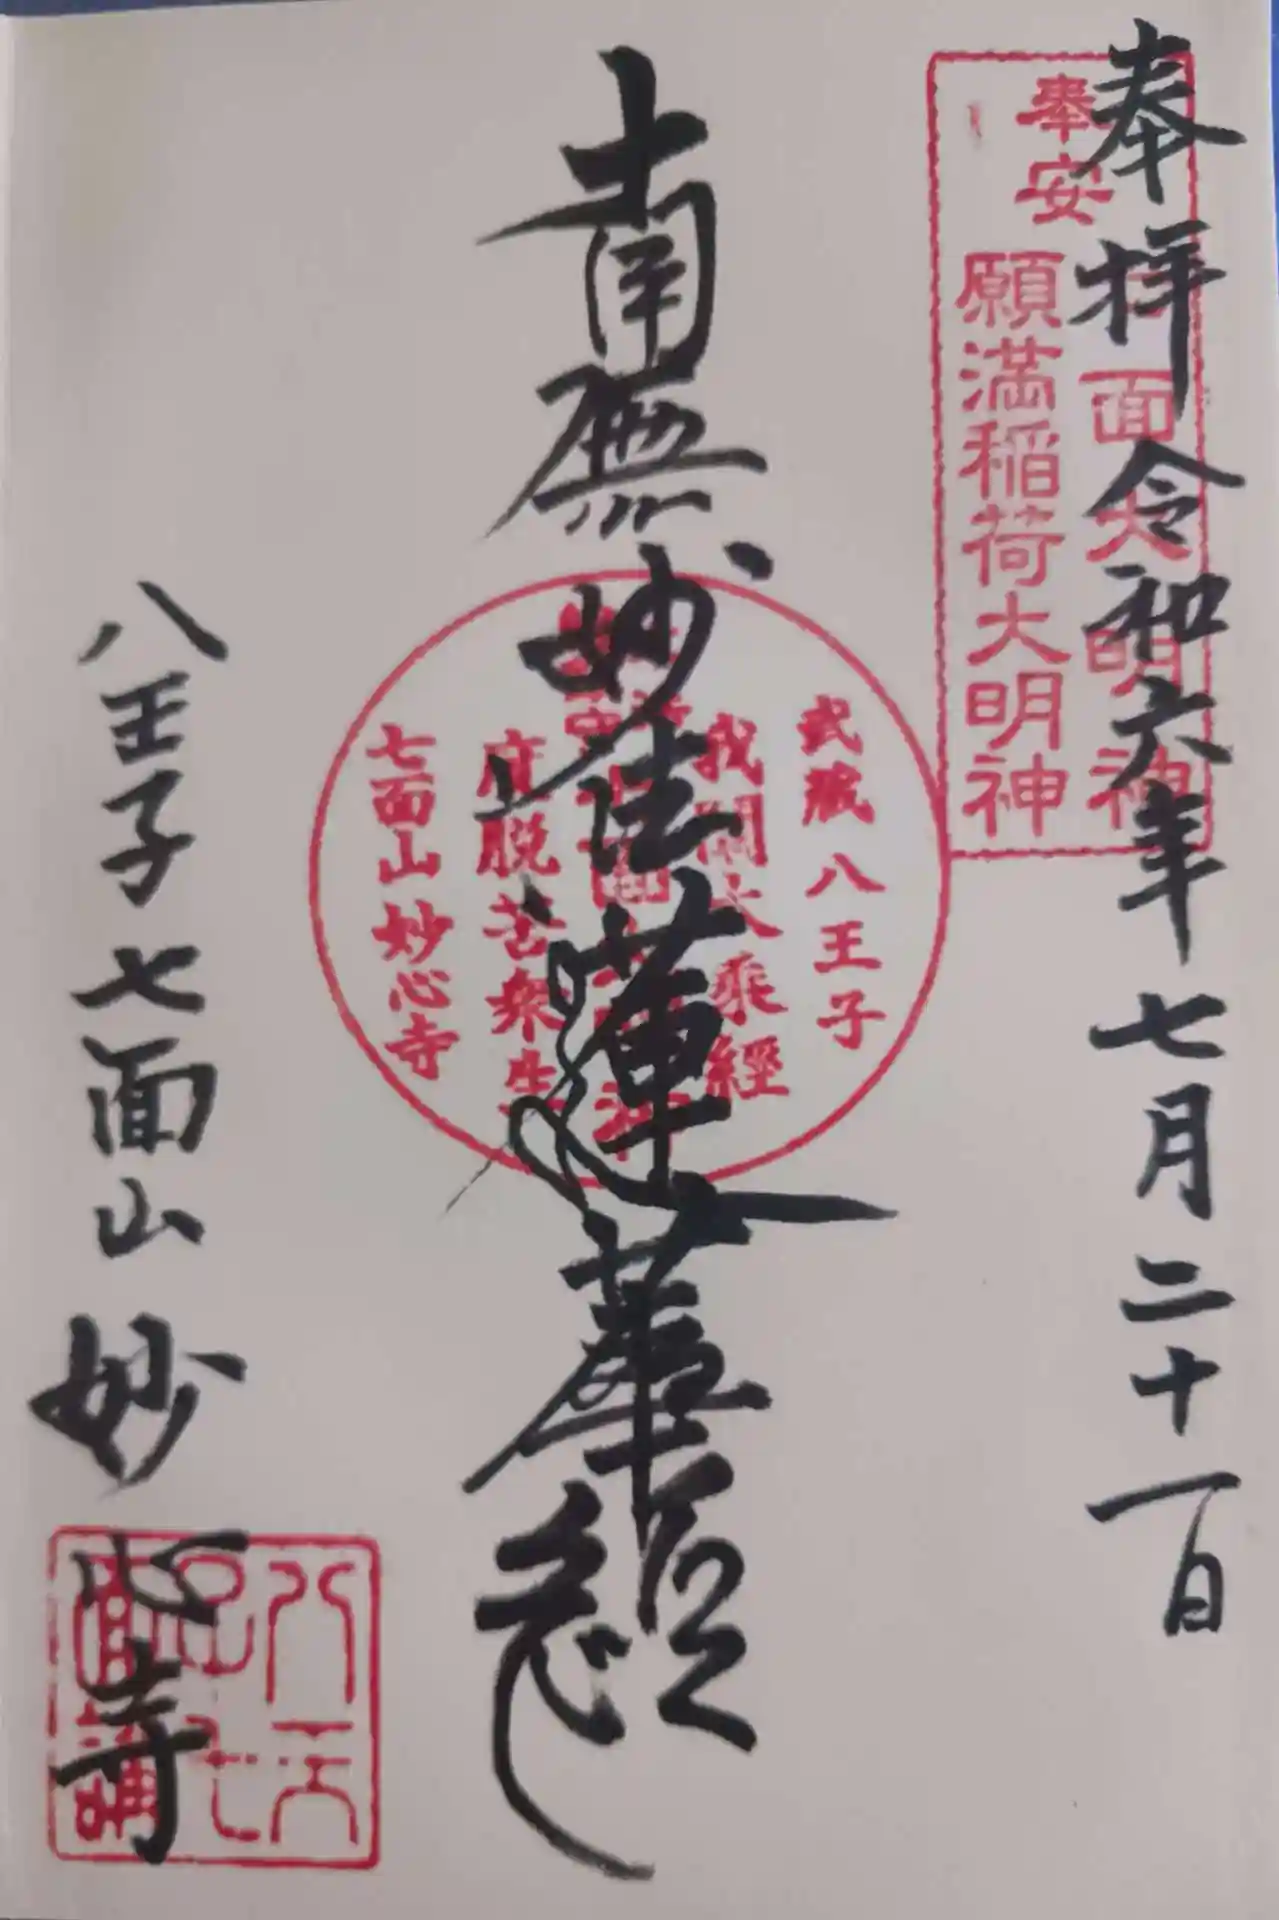 奉拝 令和六年七月二十一日
奉安
面大明神
願満稲荷大明神
南無妙法蓮華経
武蔵八王子
我闡大乗經
度脱苦衆生
七面山妙心寺
八王子七面山妙心寺
八王子七面講